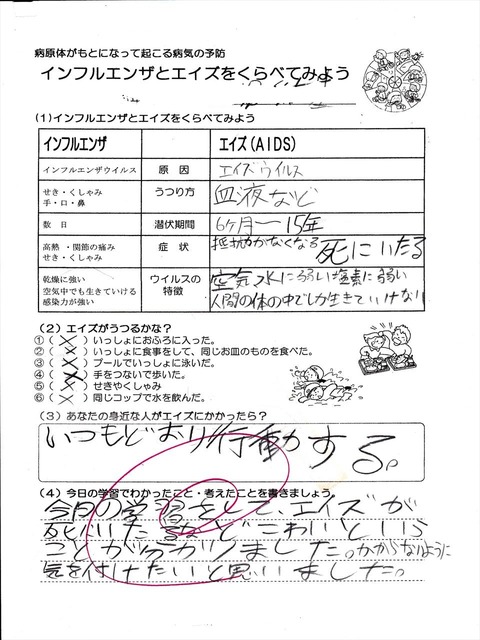 病原体がもとになって起こる病気の予防
インフルエンザとエイズをくらべてみよう
(1)インフルエンザとエイズをくらべてみよう
インフルエンザ エイズ(AIDS)
インフルエンザウイルス 原 因 エイズウイルス
せき・くしゃみ
手・口・鼻 うつり方 血液など
数 日 潜伏期間 6ヶ月〜15年
高熱・関節の痛み
せき・くしゃみ 症 状 抵抗力がなくなる 死にいたる
乾燥に強い
空気中でも生きていける
感染力が強い ウイルスの
特徴 空気 水に弱い 塩素に弱い
人間の体の中でしか生きていけない
(2)エイズがうつるかな?
①( × )いっしょにおふろに入った。
②( × )いっしょに食事をして、同じお皿のものを食べた。
③( × )プールでいっしょに泳いだ。
④( × )手をつないで歩いた。
⑤( × )せきやくしゃみ
⑥( × )同じコップで水を飲んだ。
(3)あなたの身近な人がエイズにかかったら?
いつもどおり行動する。
(4)今日の学習でわかったこと・考えたことを書きましょう。
今日の学習をして、エイズが
死にいたるなどこわいという
ことが分かりました。かからないように
気を付けたいと思いました。